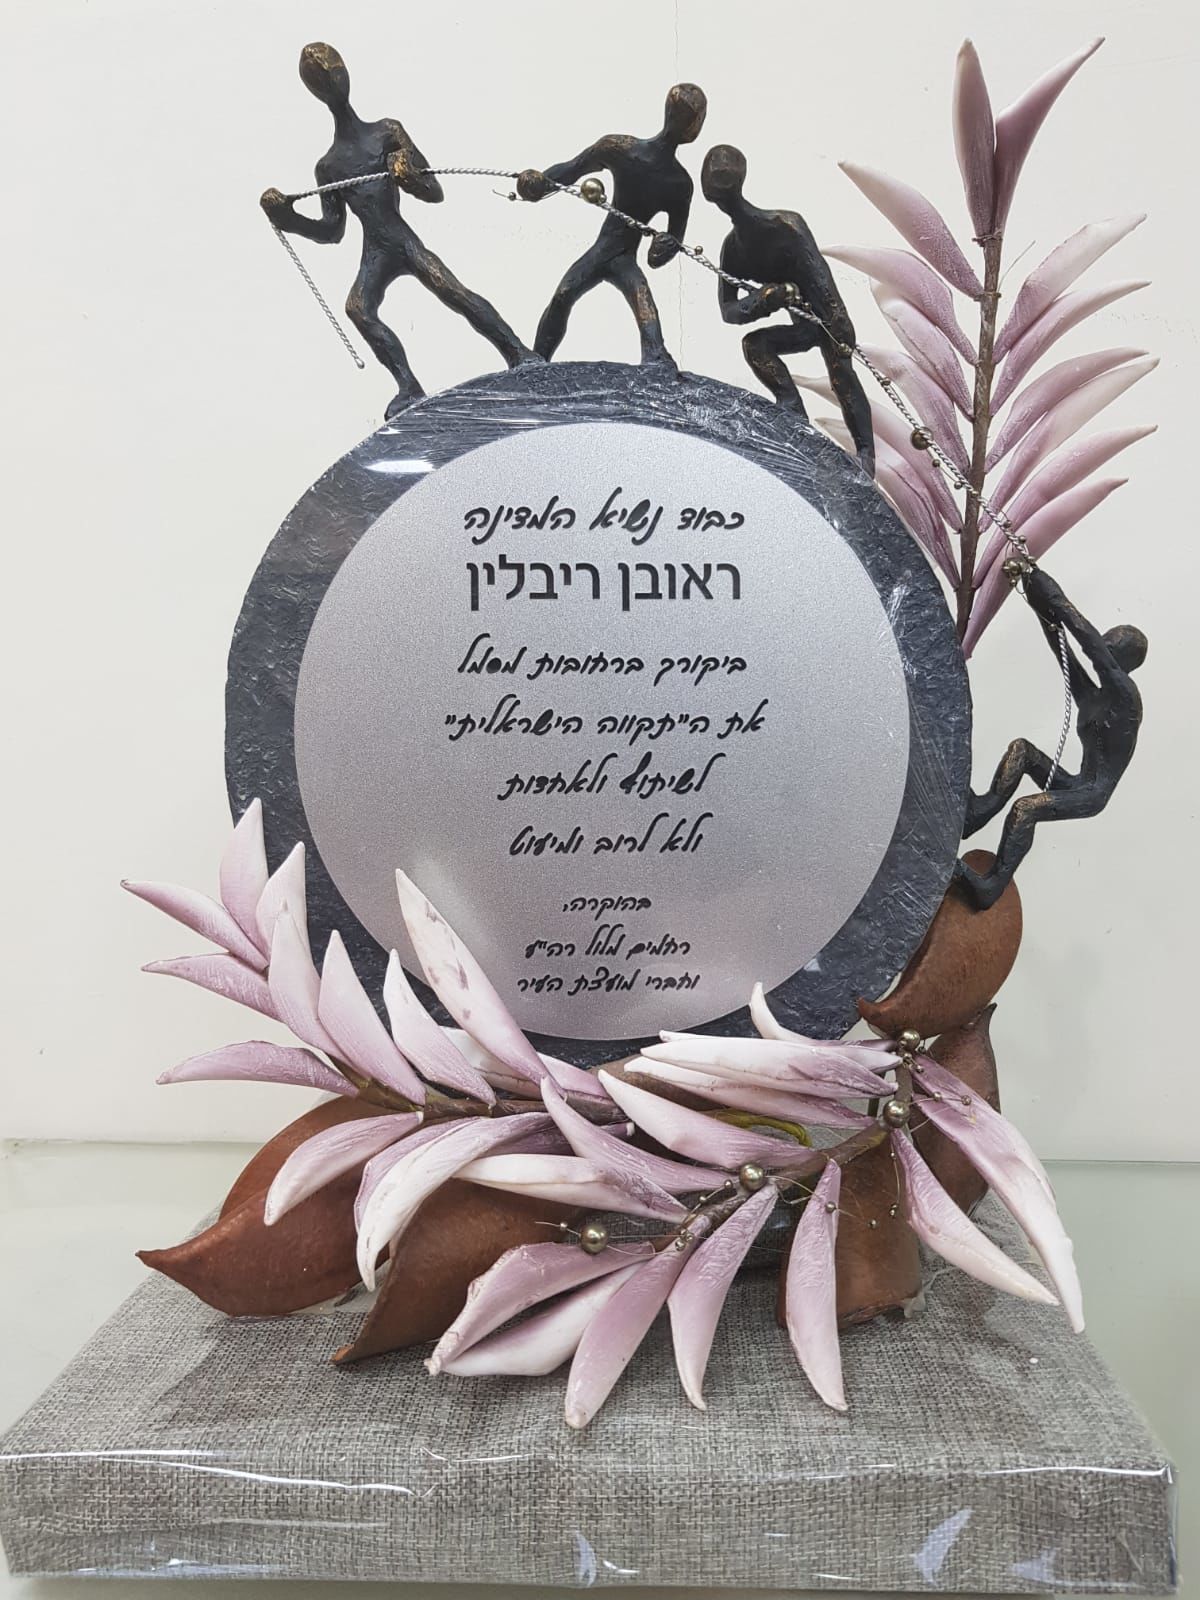 כבוד נשיא המדינה
ראובן ריבלין
ביקורך ברחובות מסמל
את ה"תקווה הישראלית"
לשיתוף ולאחדות
ולא לרוב ומיעוט
בהוקרה,
רחמים מלול רה"ע
וחברי מועצת העיר